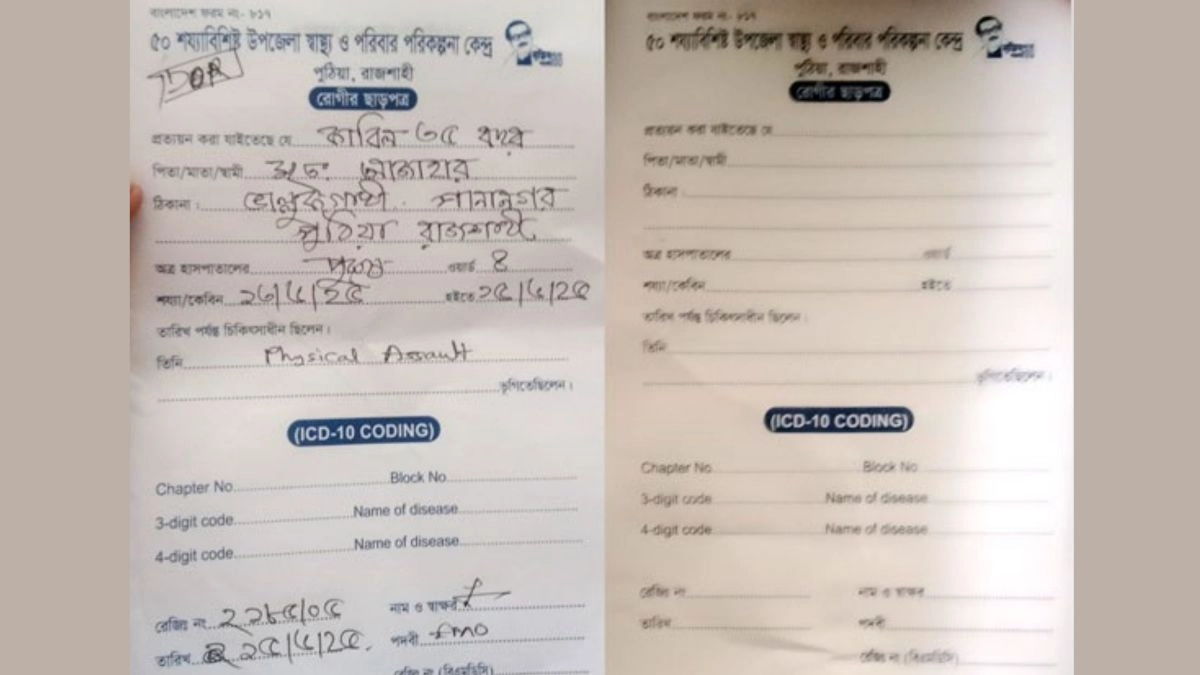 বাংলাদেশ ফরম নং- ৮১৭
৫০ শয্যাবিশিষ্ট উপজেলা স্বাস্থ্য ও পরিবার পরিকল্পনা কেন্দ্র
পুঠিয়া, রাজশাহী
রোগীর ছাড়পত্র
প্রত্যয়ন করা যাইতেছে যে
পিতা/মাতা/স্বামী মোঃ
ঠিকানা :
পুঠিয়া রাজশাহী
অত্র হাসপাতালের পুরুষ ওয়ার্ড
শয্যা/কেবিন হইতে ২৫/৫/২৫
তারিখ পর্যন্ত চিকিৎসাধীন ছিলেন।
তিনি Physical Assault
ভুগিতেছিলেন।
(ICD-10 CODING)
Chapter No. Block No.
3-digit code Name of disease
4-digit code Name of disease
রেজিঃ নং নাম ও স্বাক্ষর
তারিখ ২৫/৫/২৫. পদবী
রেজিঃ নং (বিএমডিসি)
বাংলাদেশ ফরম নং- ৮১৭
৫০ শয্যাবিশিষ্ট উপজেলা স্বাস্থ্য ও পরিবার পরিকল্পনা কেন্দ্র
পুঠিয়া, রাজশাহী
রোগীর ছাড়পত্র
প্রত্যয়ন করা যাইতেছে যে
পিতা/মাতা/স্বামী
ঠিকানা :
অত্র হাসপাতালের ওয়ার্ড
শয্যা/কেবিন হইতে
তারিখ পর্যন্ত চিকিৎসাধীন ছিলেন।
তিনি
ভুগিতেছিলেন।
(ICD-10 CODING)
Chapter No. Block No
3-digit code Name of disease
4-digit code Name of disease
রেজিঃ নং নাম ও স্বাক্ষর
তারিখ পদবী
রেজিঃ নং (বিএমডিসি)